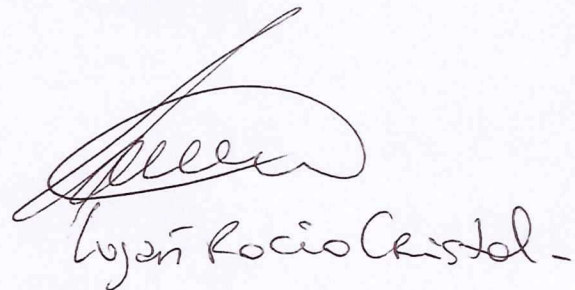 Luján Rocio Cristal-